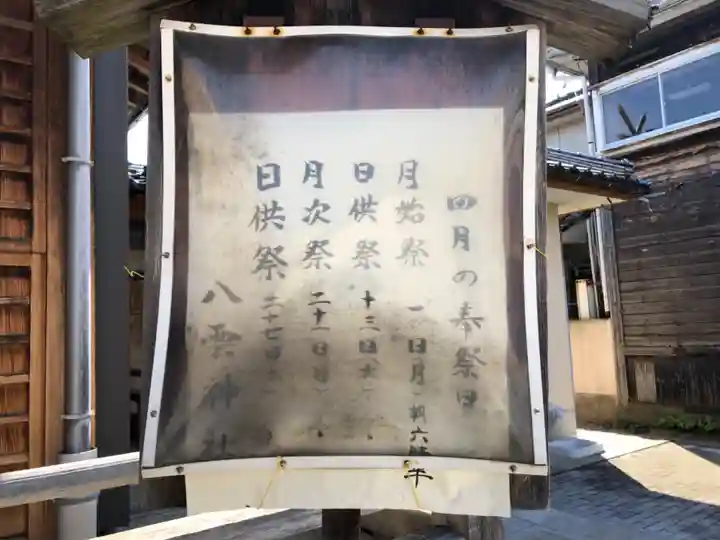 四月の奉祭日
月始祭 一日(月)朝六時半
日供祭 十三日(土)〃
月次祭 二十一日(日)〃
日供祭 二十七日(土)〃
八雲神社